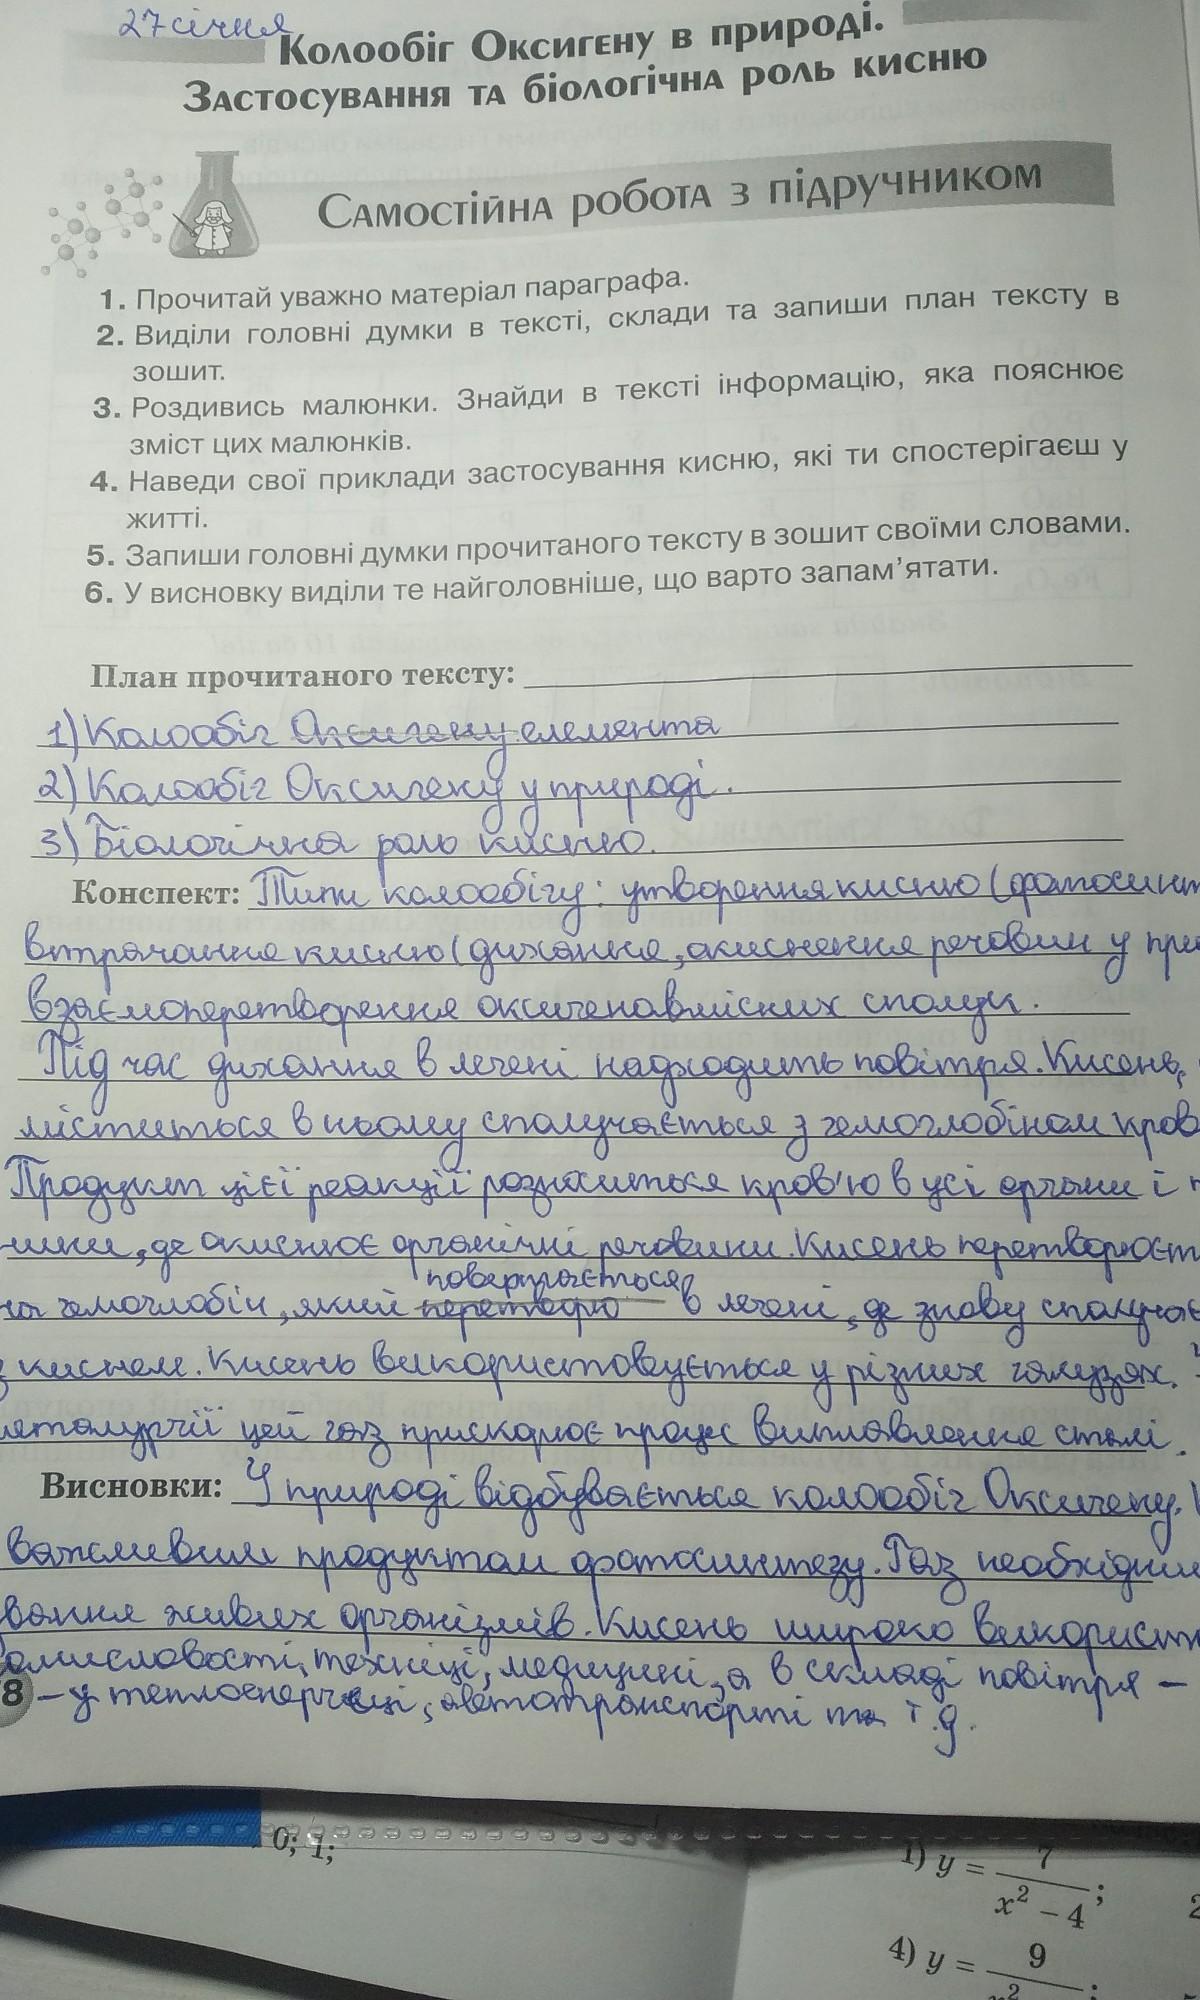 27 січня
Колообіг Оксигену в природі.
Застосування та біологічна роль кисню
Самостійна робота з підручником
1. Прочитай уважно матеріал параграфа.
2. Виділи головні думки в тексті, склади та запиши план тексту в
зошит.
3. Роздивись малюнки. Знайди в тексті інформацію, яка пояснює
зміст цих малюнків.
4. Наведи свої приклади застосування кисню, які ти спостерігаєш у
житті.
5. Запиши головні думки прочитаного тексту в зошит своїми словами.
6. У висновку виділи те найголовніше, що варто запам’ятати.
План прочитаного тексту:
1) Колообіг Оксигену елемента
2) Колообіг Оксигену у природі.
3) Біологічна роль кисню.
Конспект: Типи колообігу: утворення кисню (фотосинт
втрачання кисню (дихання, окиснення речовин у при
взаємоперетворення оксигеновмісних сполук.
Під час дихання в легені надходить повітря. Кисень,
міститься в ньому сполучається з гемоглобіном кров
Продукт цієї реакції розноситься кров'ю в усі органи і
нини, де окиснює органічні речовини. Кисень перетворюєт
повертається
на гемоглобін, який перетворю в легені, де знову сполучає
з киснем. Кисень використовується у різних галузях. У
металургії цей газ прискорює процес виплавлення сталі.
Висновки: У природі відбувається колообіг Оксигену.
важливим продуктом фотосинтезу. Газ необхідний
вання живих організмів. Кисень широко використ
омисловості, техніці, медицині, а в складі повітря –
8 – у теплоенергеці, автотранспорті та т.д.
0; 1;
1) y = 7 / x² – 4 ;
2
4) y = 9 / x² ;